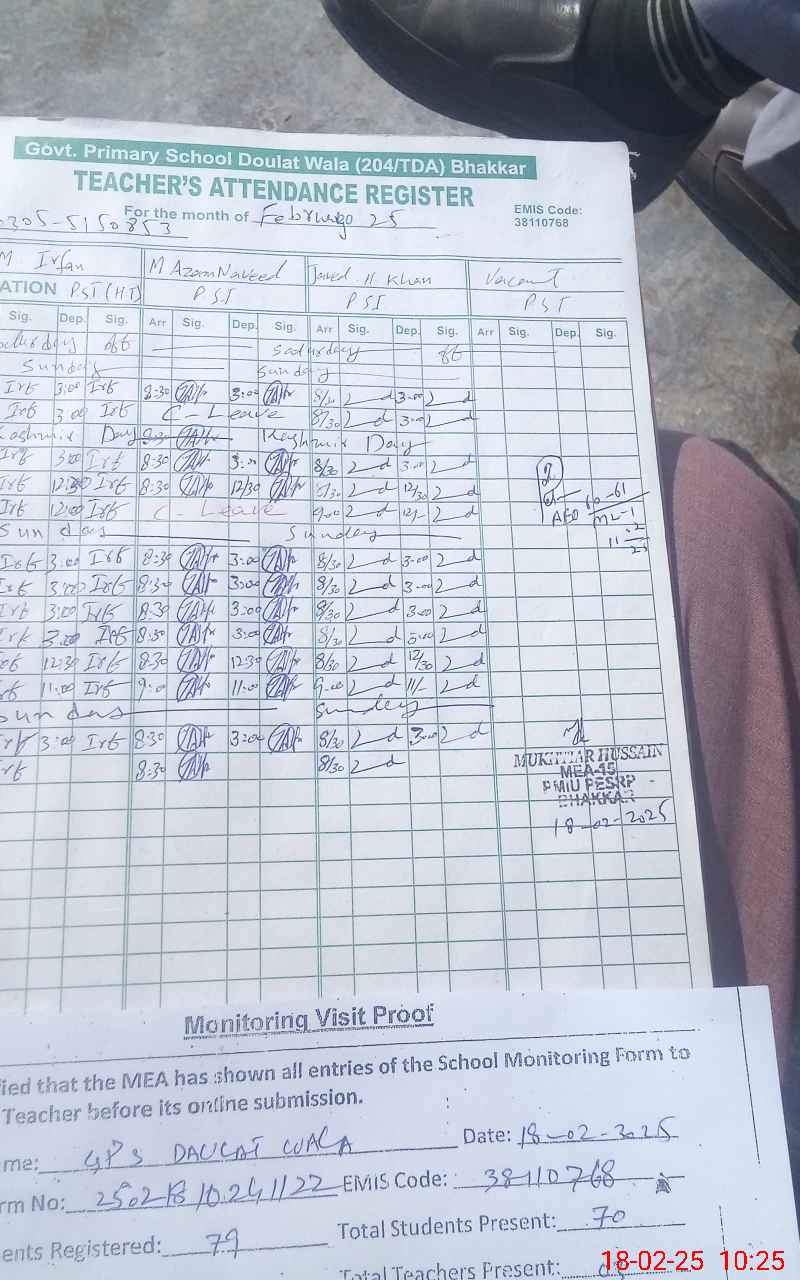 Govt. Primary School Doulat Wala (204/TDA) Bhakkar
TEACHER'S ATTENDANCE REGISTER
For the month of February 25
EMIS Code:
38110768
0305-5150853
M. Irfan M Azam Naveed Javed H Khan Vacant
ATION PST (HT) PST PST PST
Sig. Dep. Sig. Arr Sig. Dep. Sig. Arr Sig. Dep. Sig. Arr Sig. Dep. Sig.
Saturday off Saturday off
Sunday Sunday
Irf 3:00 Irf 8:30 3:00 8/30 3:00
Irf 3:00 Irf C-Leave 8/30 3:00
Kashmir Day Kashmir Day
Irf 3:00 Irf 8:30 3:00 8/30 3:00
Irf 12:30 Irf 8:30 12/30 8/30 12/30
Irf 12:00 Irf C-Leave 9:00 12/-
Sunday Sunday
Irf 3:00 Irf 8:30 3:00 8/30 3:00
Irf 3:00 Irf 8:30 3:00 8/30 3:00
Irf 3:00 Irf 8:30 3:00 8/30 3:00
Irf 3:00 Irf 8:30 3:00 8/30 3:00
Irf 12:30 Irf 8:30 12:30 8/30 12/30
Irf 11:00 Irf 9:00 11:00 9:00 11/-
Sunday Sunday
Irf 3:00 Irf 8:30 3:00 8/30 3:00
Irf 8:30 8/30
AEO
MUKHTIAR HUSSAIN
MEA-15
PMIU PESRP
BHAKKAR
18-02-2025
Monitoring Visit Proof
fied that the MEA has shown all entries of the School Monitoring Form to
Teacher before its online submission.
me: GPS DAULAT WALA Date: 18-02-2025
rm No: EMIS Code: 38110768
ents Registered: 79 Total Students Present: 70
Total Teachers Present:
18-02-25 10:25